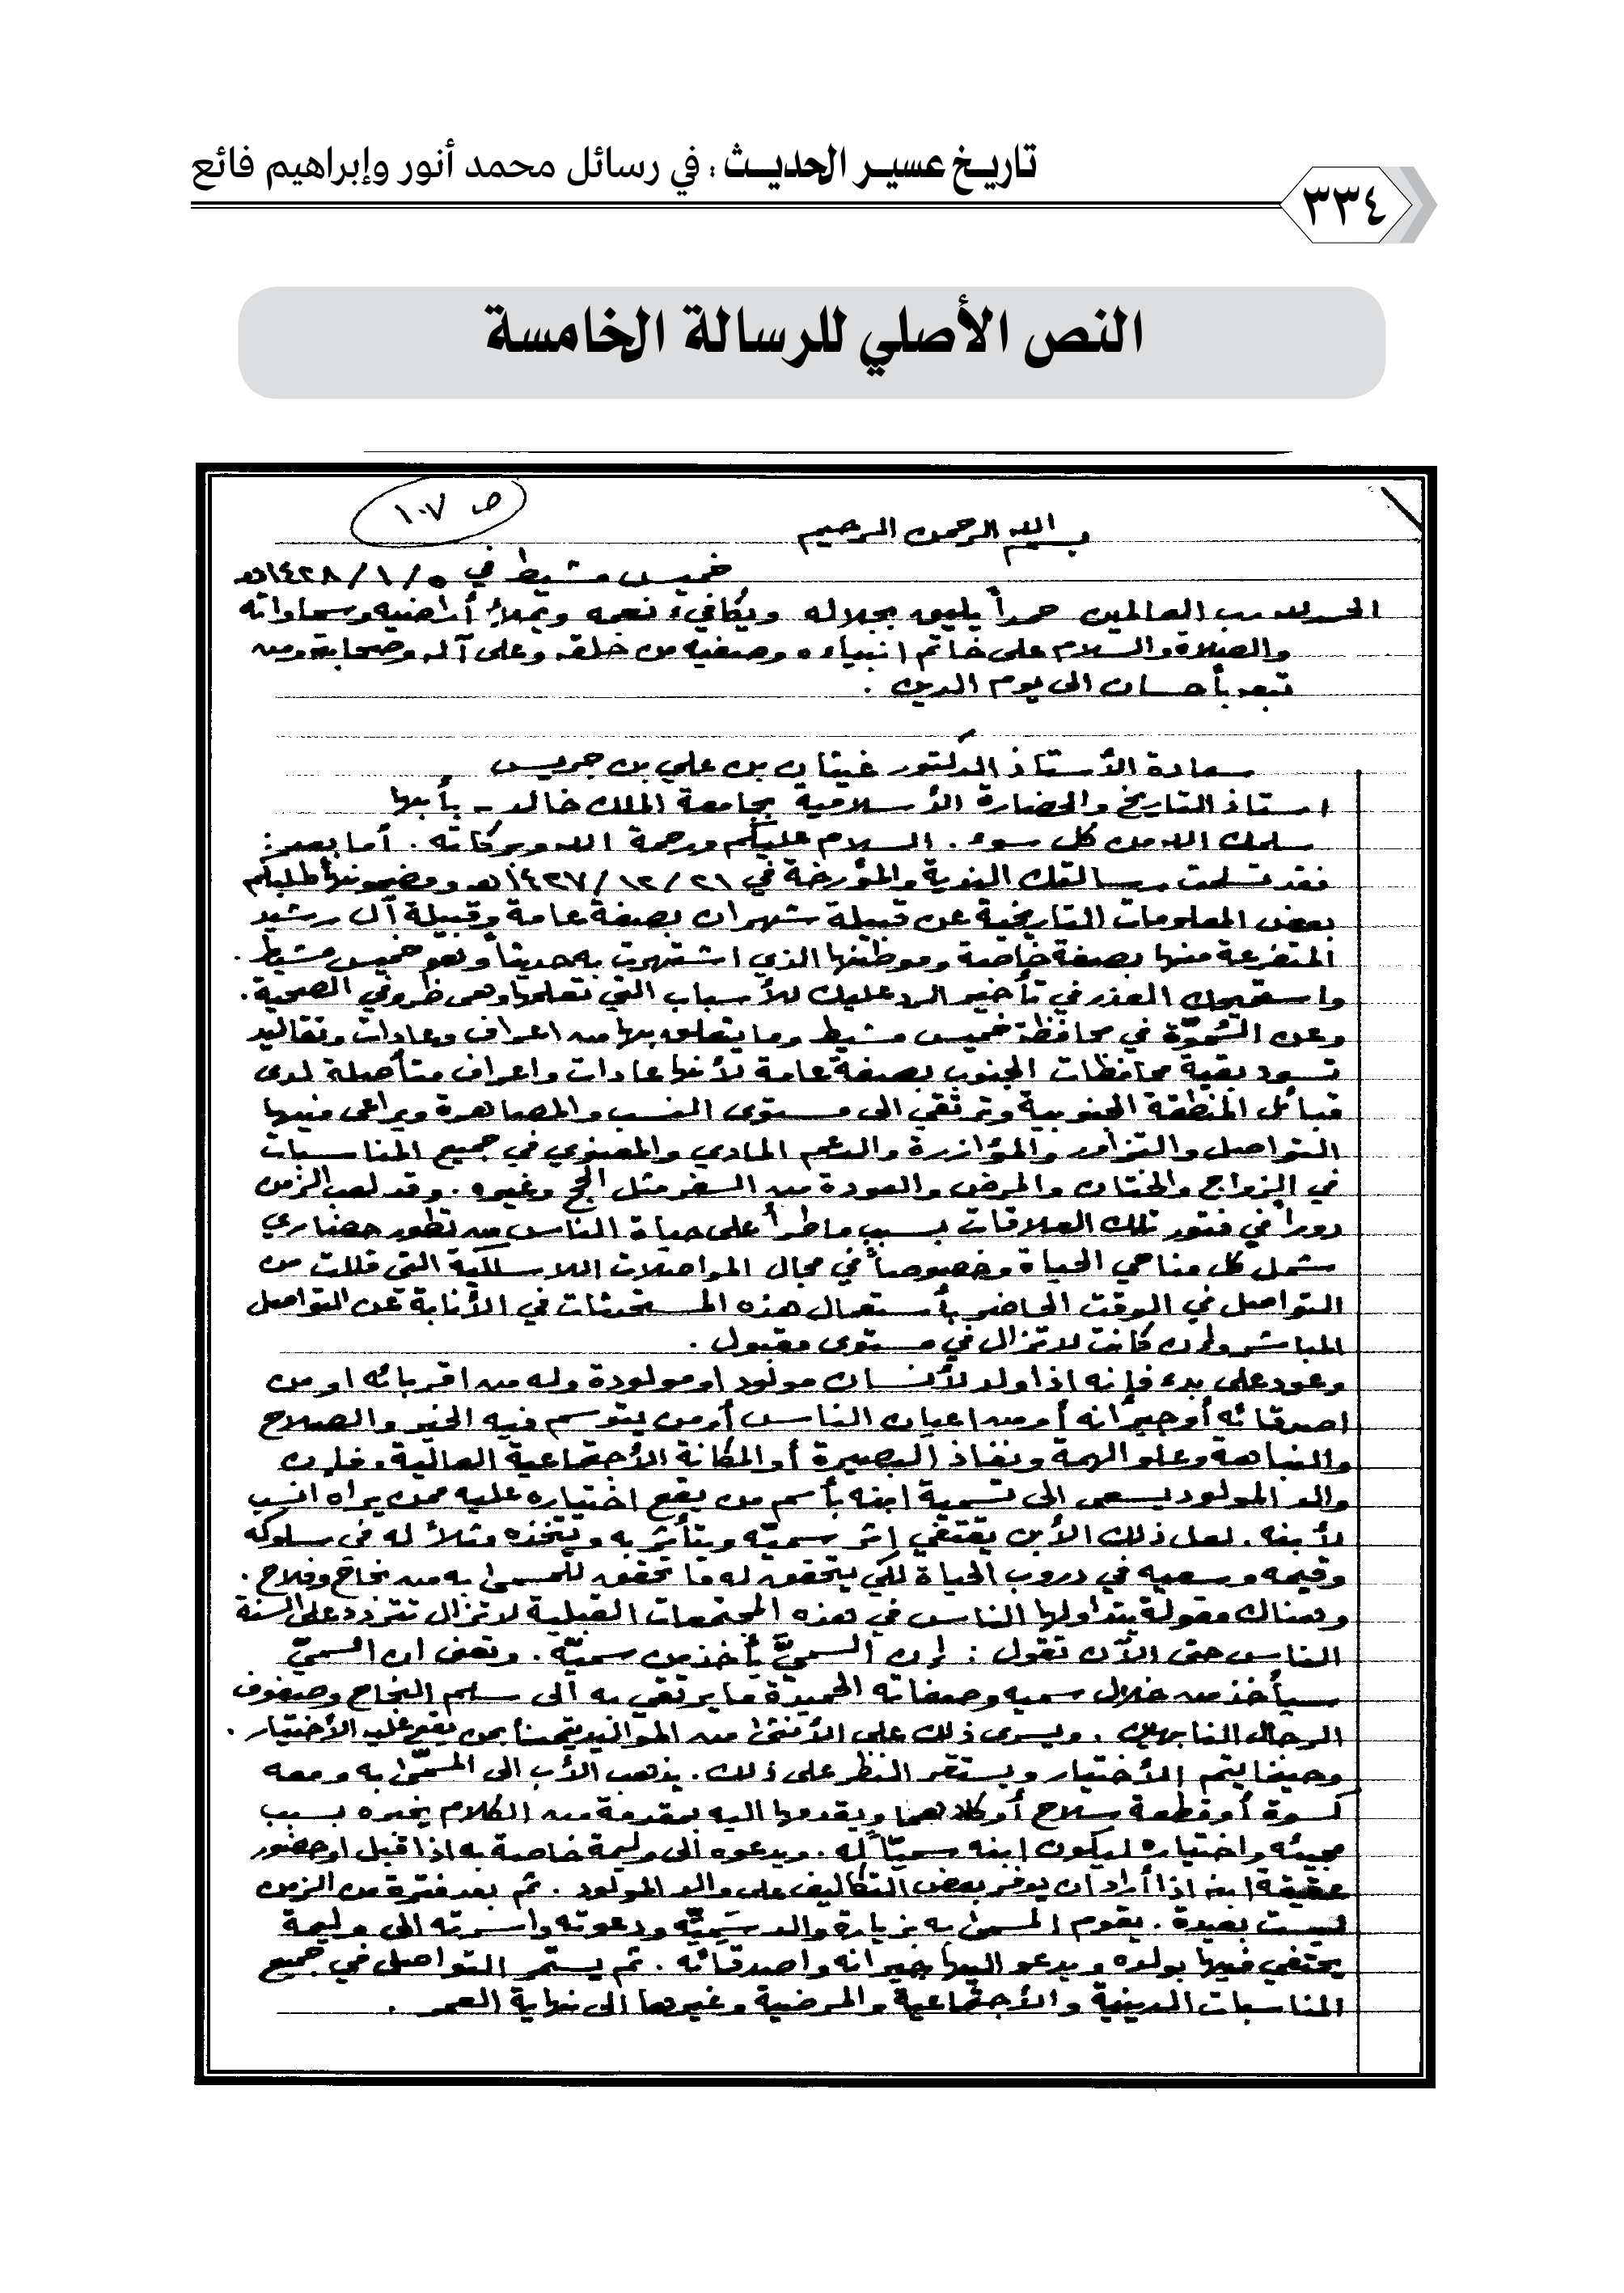 تاريخ عسير الحديث : في رسائل محمد أنور وإبراهيم فائع
٣٣٤
النص الأصلي للرسالة الخامسة
ص ١٠٧
بسم الله الرحمن الرحيم
خميس مشيط في ٥ / ١ / ١٤٢٨هـ
الحمد لله رب العالمين حمداً يليق بجلاله ويكافيء نعمه ويملأ أراضيه وسماواته
والصلاة والسلام على خاتم انبياءه وصفيه من خلقه وعلى آله وصحابته ومن
تبعه بأحسان الى يوم الدين .
سعادة الأستاذ الدكتور غيثان بن علي بن جريس
استاذ التاريخ والحضارة الأسلامية بجامعة الملك خالد - بأبها
سلمك الله من كل سوء . السلام عليكم ورحمة الله وبركاته . أما بعد :
فقد تسلمت رسالتك الندية والمؤرخة في ٢١ / ١٢ / ١٤٢٧هـ ومضمونها طلبكم
بعض المعلومات التاريخية عن قبيلة شهران بصفة عامة وقبيلة آل رشيد
المتفرعة منها بصفة خاصة وموطنها الذي اشتهرت به حديثاً وهو خميس مشيط .
واستميحك العذر في تأخير الرد عليك للأسباب التي تعلمها وهي ظروفي الصحية .
وعن السُّموّة في محافظة خميس مشيط وما يتعلق بها من اعراف وعادات وتقاليد
تسود بقية محافظات الجنوب بصفة عامة لأنها عادات واعراف متأصلة لدى
قبائل المنطقة الجنوبية وترتقي الى مستوى النسب والمصاهرة ويراعى فيها
التواصل والتزاور والمؤازرة والدعم المادي والمعنوي في جميع المناسبات
في الزواج والختان والمرض والعودة من السفر مثل الحج وغيره . وقد لعب الزمن
دوراً في فتور تلك العلاقات بسبب ماطرأ على حياة الناس من تطور حضاري
شمل كل مناحي الحياة وخصوصاً في مجال المواصلات اللاسلكية التي قللت من
التواصل في الوقت الحاضر بأستعمال هذه المستحدثات في الأنابة عن التواصل
المباشر وإن كانت لاتزال في مستوى مقبول .
وعود على بدء فإنه اذا ولد لأنسان مولود او مولودة وله من اقربائه او من
اصدقائه أو جيرانه أو من اعيان الناس أو من يتوسم فيه الخير والصلاح
والنباهة وعلو الهمة ونفاذ البصيرة أو المكانة الأجتماعية العالية . فإن
والد المولود يسعى الى تسمية ابنه بأسم من يقع اختياره عليه ممن يراه انسب
لأبنه . لعل ذلك الأبن يقتفي إثر سميّه ويتأثر به ويتخذه مثلاً له في سلوكه
وقيمه وسعيه في دروب الحياة لكي يتحقق له ما تحقق للمسمى به من نجاح وفلاح .
وهناك مقولة يتداولها الناس في هذه المجتمعات القبلية لاتزال تتردد على السنة
الناس حتى الآن تقول : إن السميَّ يأخذ من سميّه . وتعني ان السميّ
سيأخذ من خلال سميه وصفاته الحميدة ما يرتقي به الى سلم النجاح وصفوف
الرجال النابهين . ويسري ذلك على الأنثى من المواليد تيمناً بمن يقع عليه الأختيار .
وحينما يتم الأختيار ويستقر النظر على ذلك . يذهب الأب الى المسمّى به ومعه
كسوة أو قطعة سلاح أو كلاهما ويقدمها اليه بمقدمة من الكلام يخبره بسبب
مجيئه واختياره ليكون ابنه سميّاً له . ويدعوه الى وليمة خاصة به اذا قبل او حضور
عقيقة ابنه اذا أراد ان يوفر بعض التكاليف على والد المولود . ثم بعد فترة من الزمن
ليست بعيدة . يقوم المسمى به بزيارة والد سَمِيِّه ودعوته واسرته الى وليمة
يحتفي فيها بولده ويدعو اليها جيرانه واصدقائه . ثم يستمر التواصل في جميع
المناسبات الدينية والأجتماعية والمرضية وغيرها الى نهاية العمر .